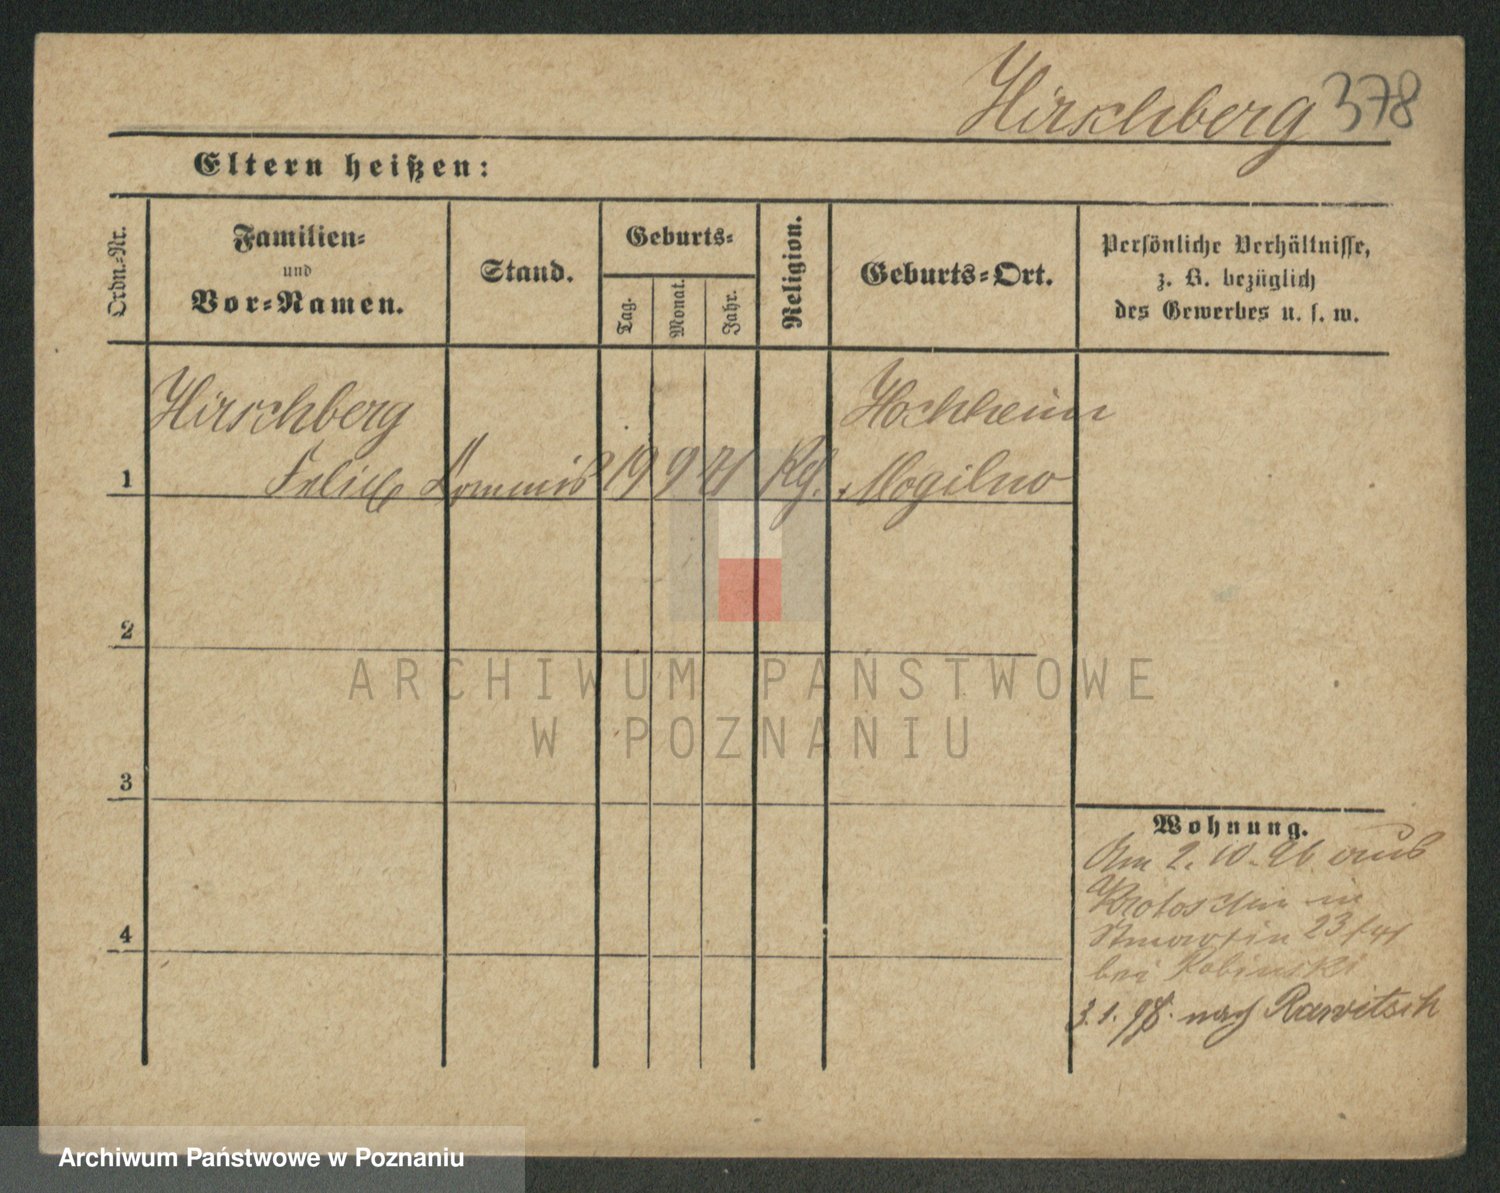 Hirschberg 378
Eltern heißen:
Ordn.-Nr.
Familien-
und
Vor-Namen.
Stand.
Geburts-
Tag.
Monat.
Jahr.
Religion.
Geburts-Ort.
Persönliche Verhältnisse,
z. B. bezüglich
des Gewerbes u. s. w.
Hirschberg
Hochheim
1 Felix Commis 19 9 71 Mogilno
2
3
4
Wohnung.
Am 2. 10. 96 aus
Krotoschin in
Stmartin 23
bei Rabinski
3. 1. 98. nach Rawitsch
ARCHIWUM PAŃSTWOWE
W POZNANIU
Archiwum Państwowe w Poznaniu